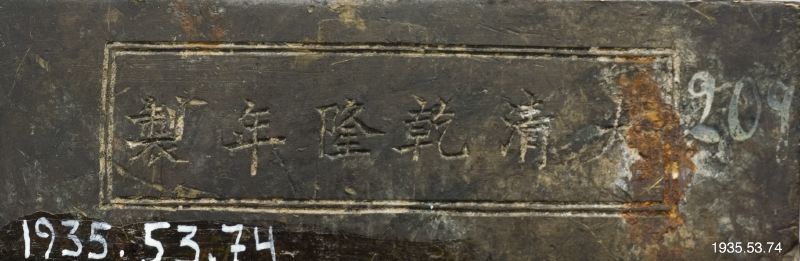 大清乾隆年製
209
1935.53.74
1935.53.74